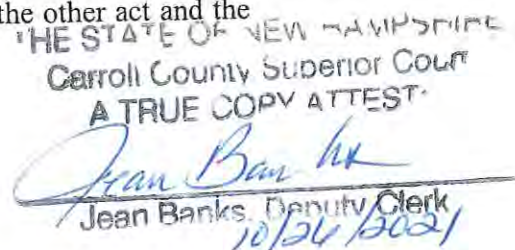 the other act and the
THE STATE OF NEW HAMPSHIRE
Carroll County Superior Court
A TRUE COPY ATTEST·
Jean Banks
Jean Banks, Deputy Clerk
10/26/2021